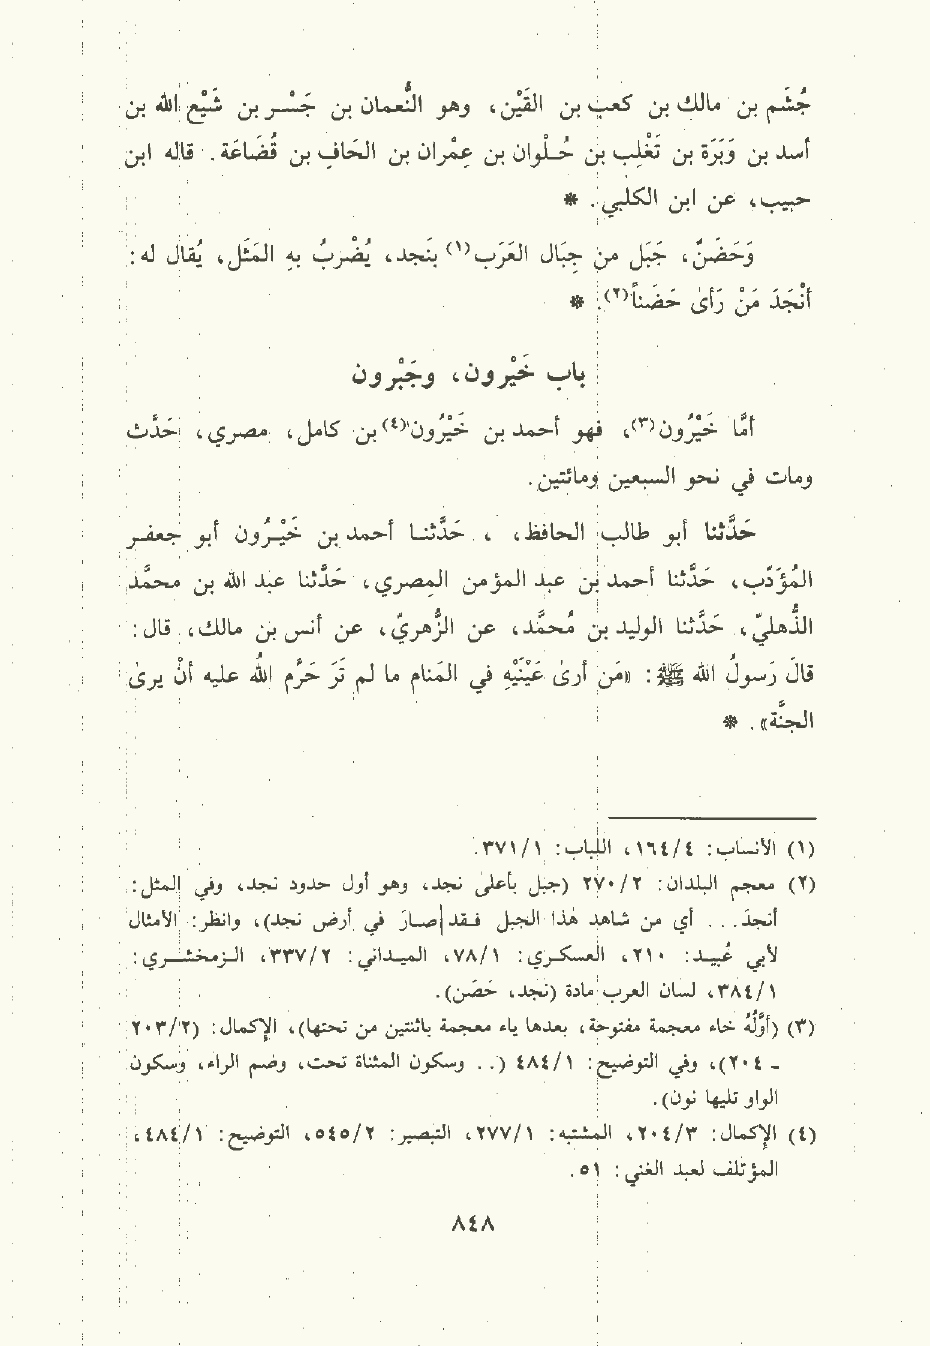 جُشَم بن مالك بن كعب بن القَيْن، وهو النُّعمان بن جَسْر بن شَيْع الله بن
أسد بن وَبَرَة بن تَغْلِب بن حُلْوان بن عِمْران بن الحَافِ بن قُضَاعَة. قاله ابن
حبيب، عن ابن الكلبي. *
وَحَضَنٌ، جَبَل من جِبَال العَرَب(١) بنَجد، يُضْرَبُ به المَثَل، يُقال له:
أَنْجَدَ مَنْ رَأَىٰ حَضَناً(٢). *
باب خَيْرون، وجَبْرون
أمَّا خَيْرُون(٣)، فهو أحمد بن خَيْرُون(٤) بن كامل، مصري، حَدَّث
ومات في نحو السبعين ومائتين.
حَدَّثنا أبو طالب الحافظ، ، حَدَّثنا أحمد بن خَيْرُون أبو جعفر
المُؤَدِّب، حَدَّثنا أحمد بن عبد المؤمن المِصري، حَدَّثنا عبد الله بن محمَّد
الذُّهليّ، حَدَّثنا الوليد بن مُحمَّد، عن الزُّهريّ، عن أنس بن مالك، قال:
قالَ رَسولُ الله ﷺ: «مَن أرىٰ عَيْنَيْهِ في المَنام ما لم تَرَ حَرَّم اللهُ عليه أنْ يرىٰ
الجنَّة». *
(١) الأنساب: ١٦٤/٤، اللباب: ٣٧١/١.
(٢) معجم البلدان: ٢٧٠/٢ (جبل بأعلى نجد، وهو أول حدود نجد، وفي المثل:
أنجدَ... أي من شاهد هذا الجبل فقد صارَ في أرض نجد)، وانظر: الأمثال
لأبي عُبيد: ٢١٠، العسكري: ٧٨/١، الميداني: ٣٣٧/٢، الزمخشري:
٣٨٤/١، لسان العرب مادة (نجد، حَضَن).
(٣) (أوَّلُهُ خاء معجمة مفتوحة، بعدها ياء معجمة باثنتين من تحتها)، الإكمال: (٢٠٣/٢
ـ ٢٠٤)، وفي التوضيح: ٤٨٤/١ (.. وسكون المثناة تحت، وضم الراء، وسكون
الواو تليها نون).
(٤) الإكمال: ٢٠٤/٣، المشتبه: ٢٧٧/١، التبصير: ٥٤٥/٢، التوضيح: ٤٨٤/١،
المؤتلف لعبد الغني: ٥١.
٨٤٨